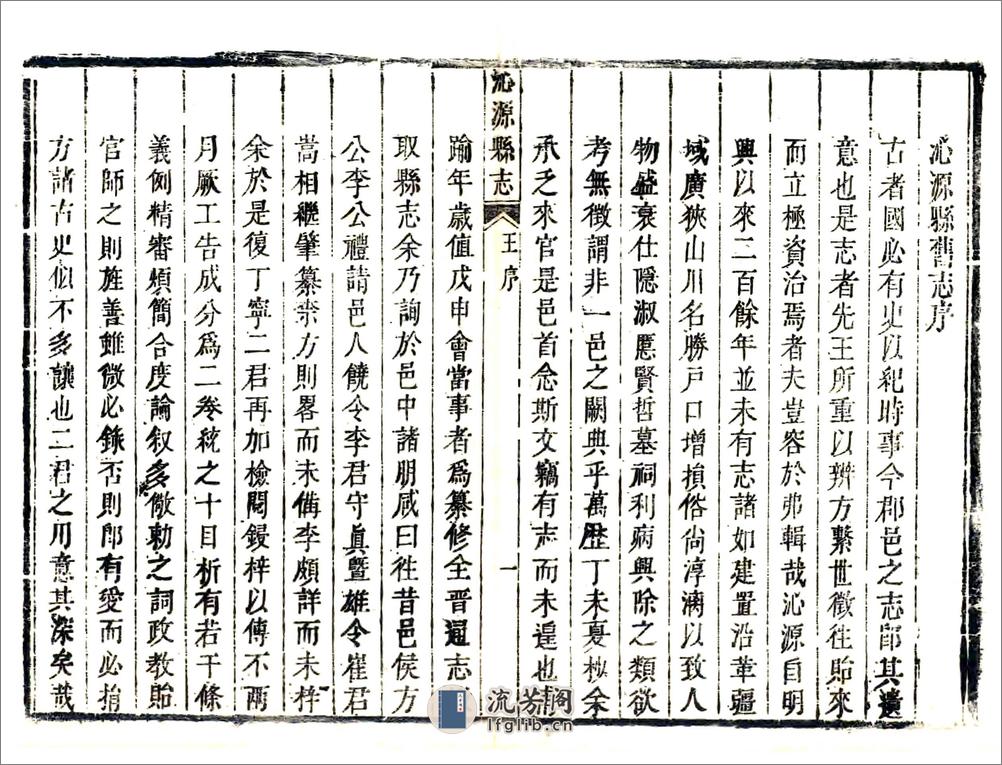 沁源縣舊志序
古者國必有史以紀時事今郡邑之志郎其遺
意也是志者先王所重以辨方繫世徵徃貽來
而立極資治焉者夫豈容於弗輯哉沁源自明
興以來二百餘年並未有志諸如建置沿革疆
域廣狹山川名勝戸口增損俗尚淳漓以致人
物盛衰仕隱淑慝賢哲墓祠利病興除之類欲
考無徵謂非一邑之闕典乎萬歷丁未夏杪余
承乏來官是邑首念斯文竊有志而未遑也
沁源縣志
王序
一
踰年歲值戊申會當事者爲纂修全晋通志
取縣志余乃詢於邑中諸朋咸曰徃昔邑侯方
公李公禮請邑人饒令李君守眞曁雄令崔君
嵩相繼肇纂柰方則畧而未備李頗詳而未梓
余於是復丁寧二君再加檢閱鋟梓以傳不兩
月厥工告成分爲二卷統之十目析有若干條
義例精審煩簡合度論叙多儆勅之詞政教貽
官師之則旌善雖微必錄否則郎有愛而必捐
方諸古史似不多讓也二君之用意其深矣哉
流芳閣
lfglib.cn